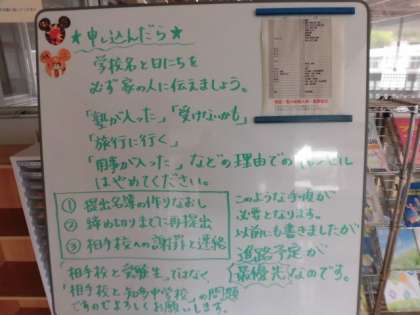 ★申し込んだら★
学校名と日にちを
必ず家の人に伝えましょう。
「塾が入った」「受けないかも」
「旅行に行く」
「用事が入った」などの理由でのキャンセル
はやめてください。
① 提出名簿の作りなおし
② 締め切りまでに再提出
③ 相手校への謝罪と連絡
このような手度が
必要となります。
以前にも書きましたが
進路予定が
最優先なのです。
「相手校と受験生」ではなく、
「相手校と知多中学校」の問題
ですのでよろしくお願いします。